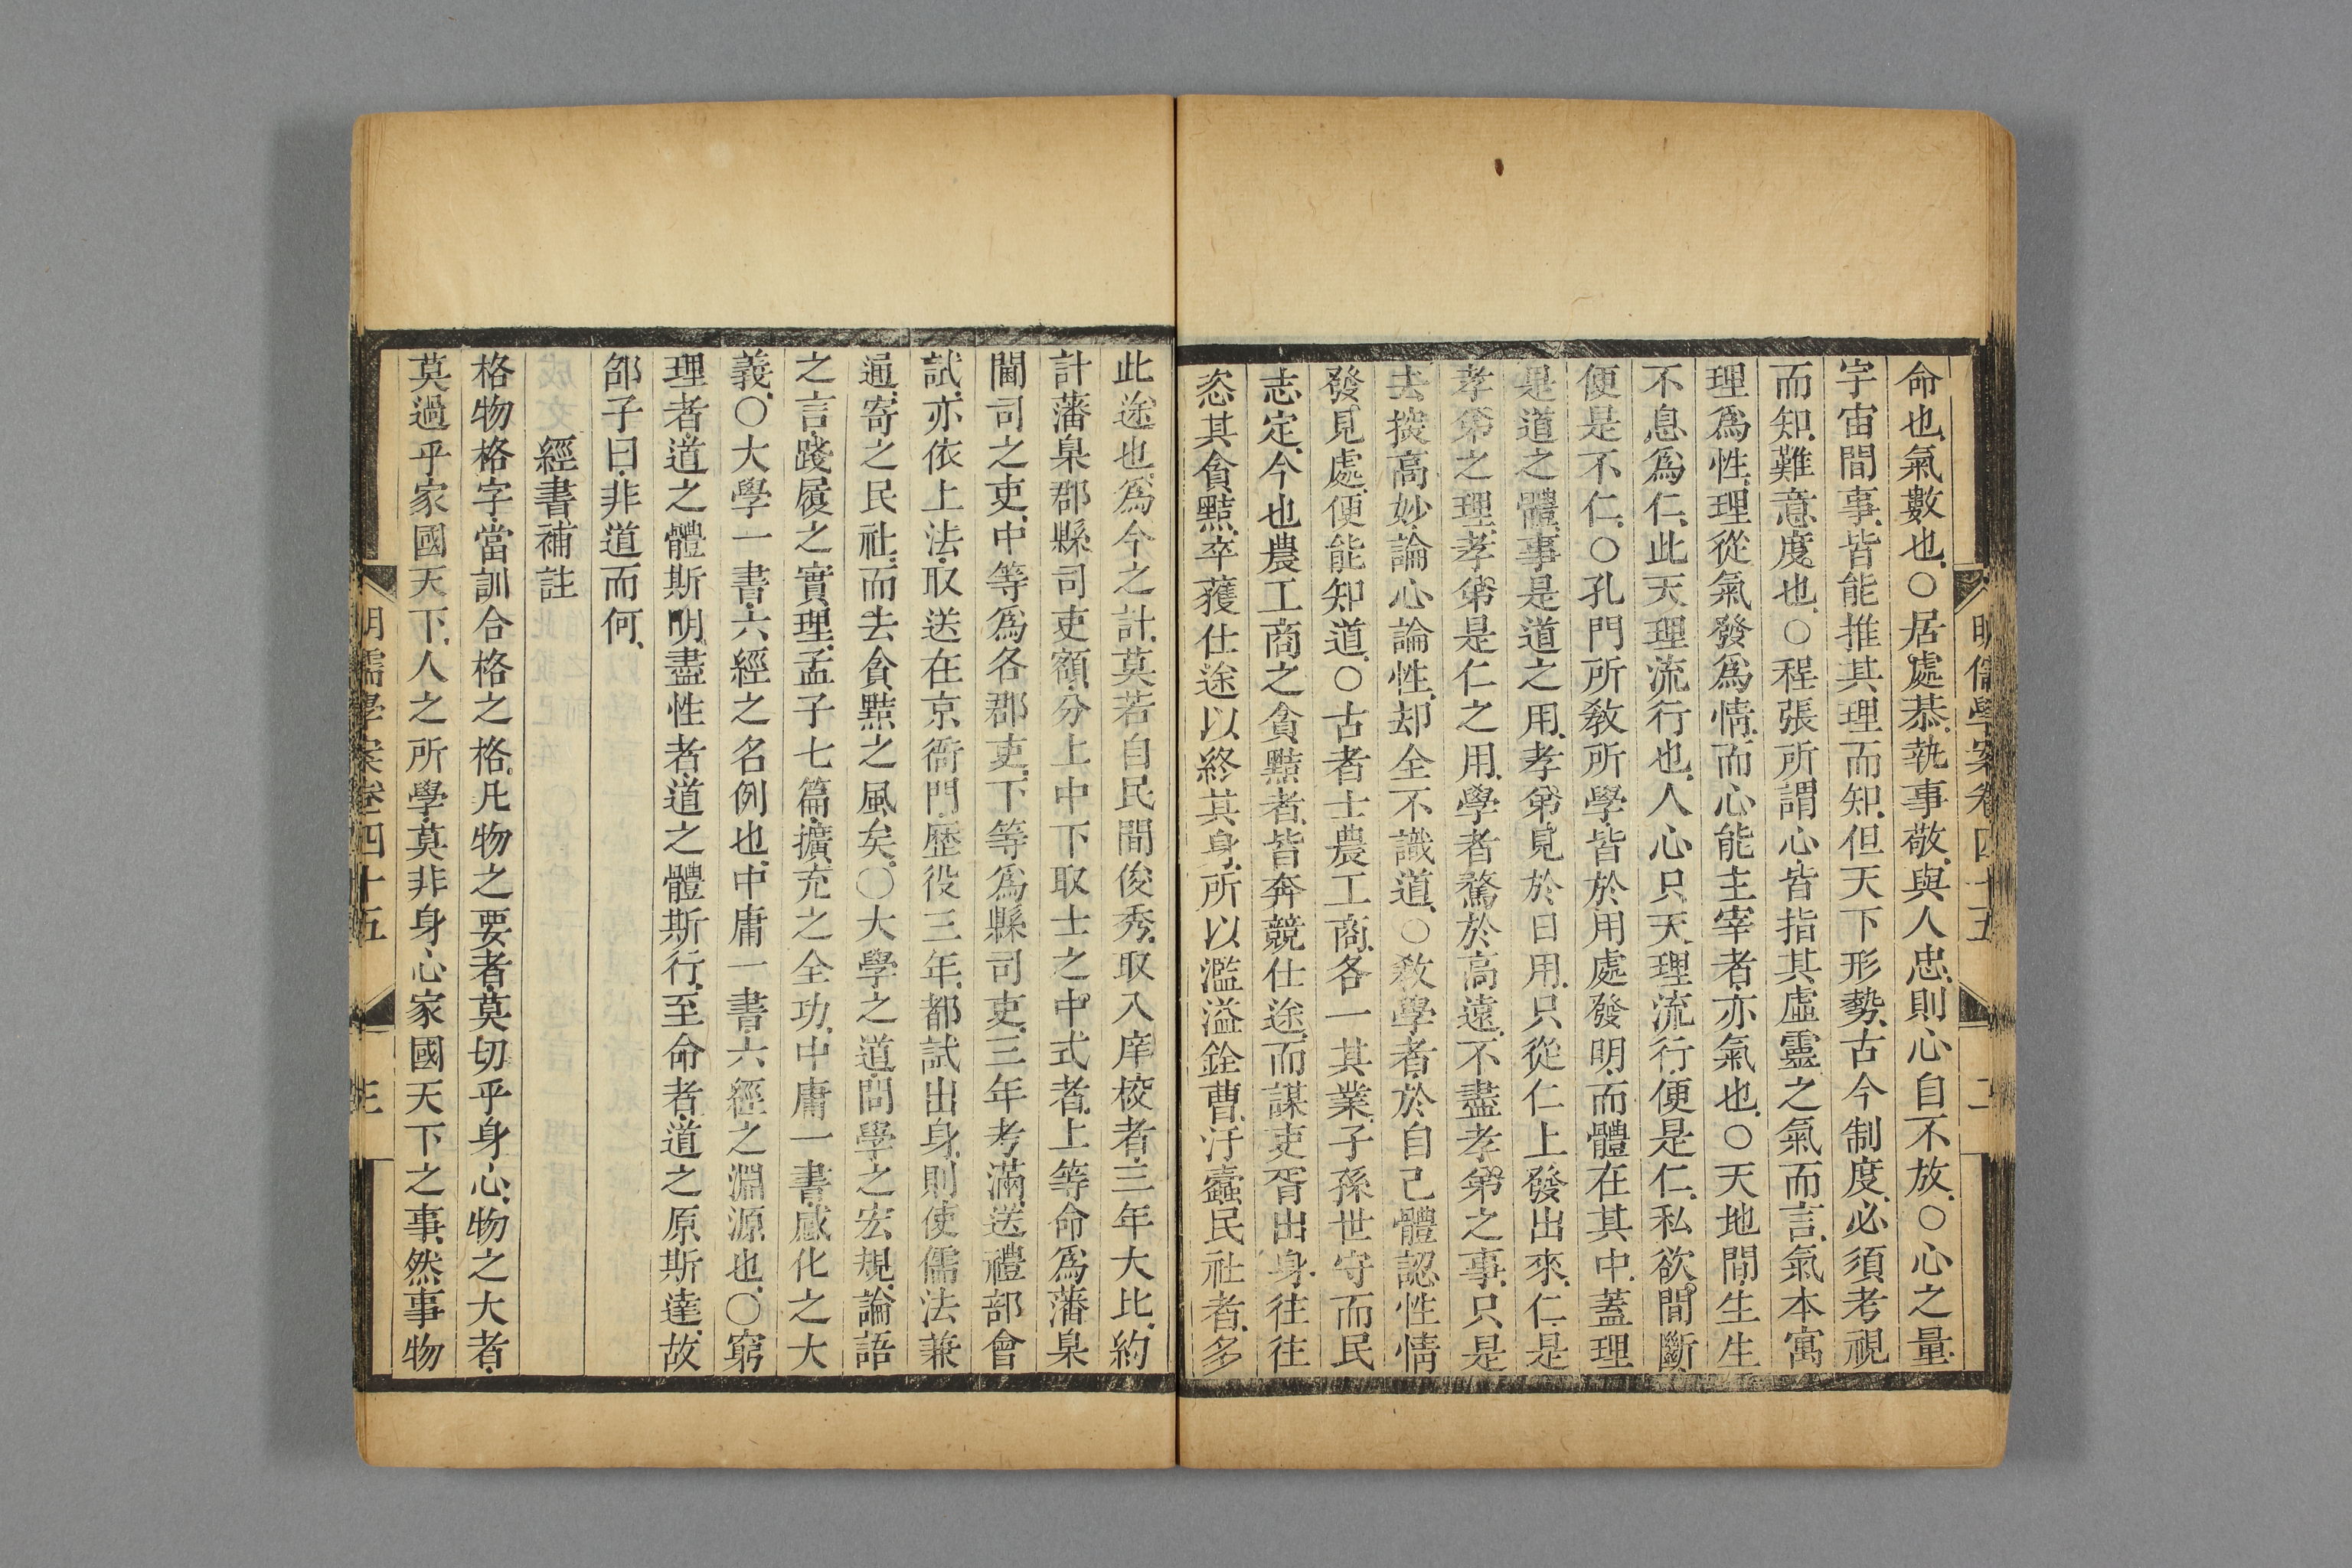 明儒學案卷四十五 二
命也氣數也○居處恭執事敬與人忠則心自不放○心之量
宇宙間事皆能推其理而知但天下形勢古今制度必須考視
而知難意度也○程張所謂心皆指其虛靈之氣而言氣本寓
理爲性理從氣發爲情而心能主宰者亦氣也○天地間生生
不息爲仁此天理流行也人心只天理流行便是仁私欲間斷
便是不仁○孔門所敎所學皆於用處發明而體在其中蓋理
是道之體事是道之用孝弟見於日用只從仁上發出來仁是
孝弟之理孝弟是仁之用學者騖於高遠不盡孝弟之事只是
去探高妙論心論性却全不識道○敎學者於自己體認性情
發見處便能知道○古者士農工商各一其業子孫世守而民
志定今也農工商之貪黠者皆奔競仕途而謀吏胥出身往往
恣其貪黠卒獲仕途以終其身所以濫溢銓曹汙蠹民社者多
此途也爲今之計莫若自民間俊秀取入庠校者三年大比約
計藩臬郡縣司吏額分上中下取士之中式者上等命爲藩臬
閫司之吏中等爲各郡吏下等爲縣司吏三年考滿送禮部會
試亦依上法取送在京衙門歷役三年都試出身則使儒法兼
通寄之民社而去貪黠之風矣○大學之道問學之宏規論語
之言踐履之實理孟子七篇擴充之全功中庸一書感化之大
義○大學一書六經之名例也中庸一書六經之淵源也○窮
理者道之體斯明盡性者道之體斯行至命者道之原斯達故
邵子曰非道而何
經書補註
格物格字當訓合格之格凡物之要者莫切乎身心物之大者
莫過乎家國天下人之所學莫非身心家國天下之事然事物
明儒學案卷四十五 三